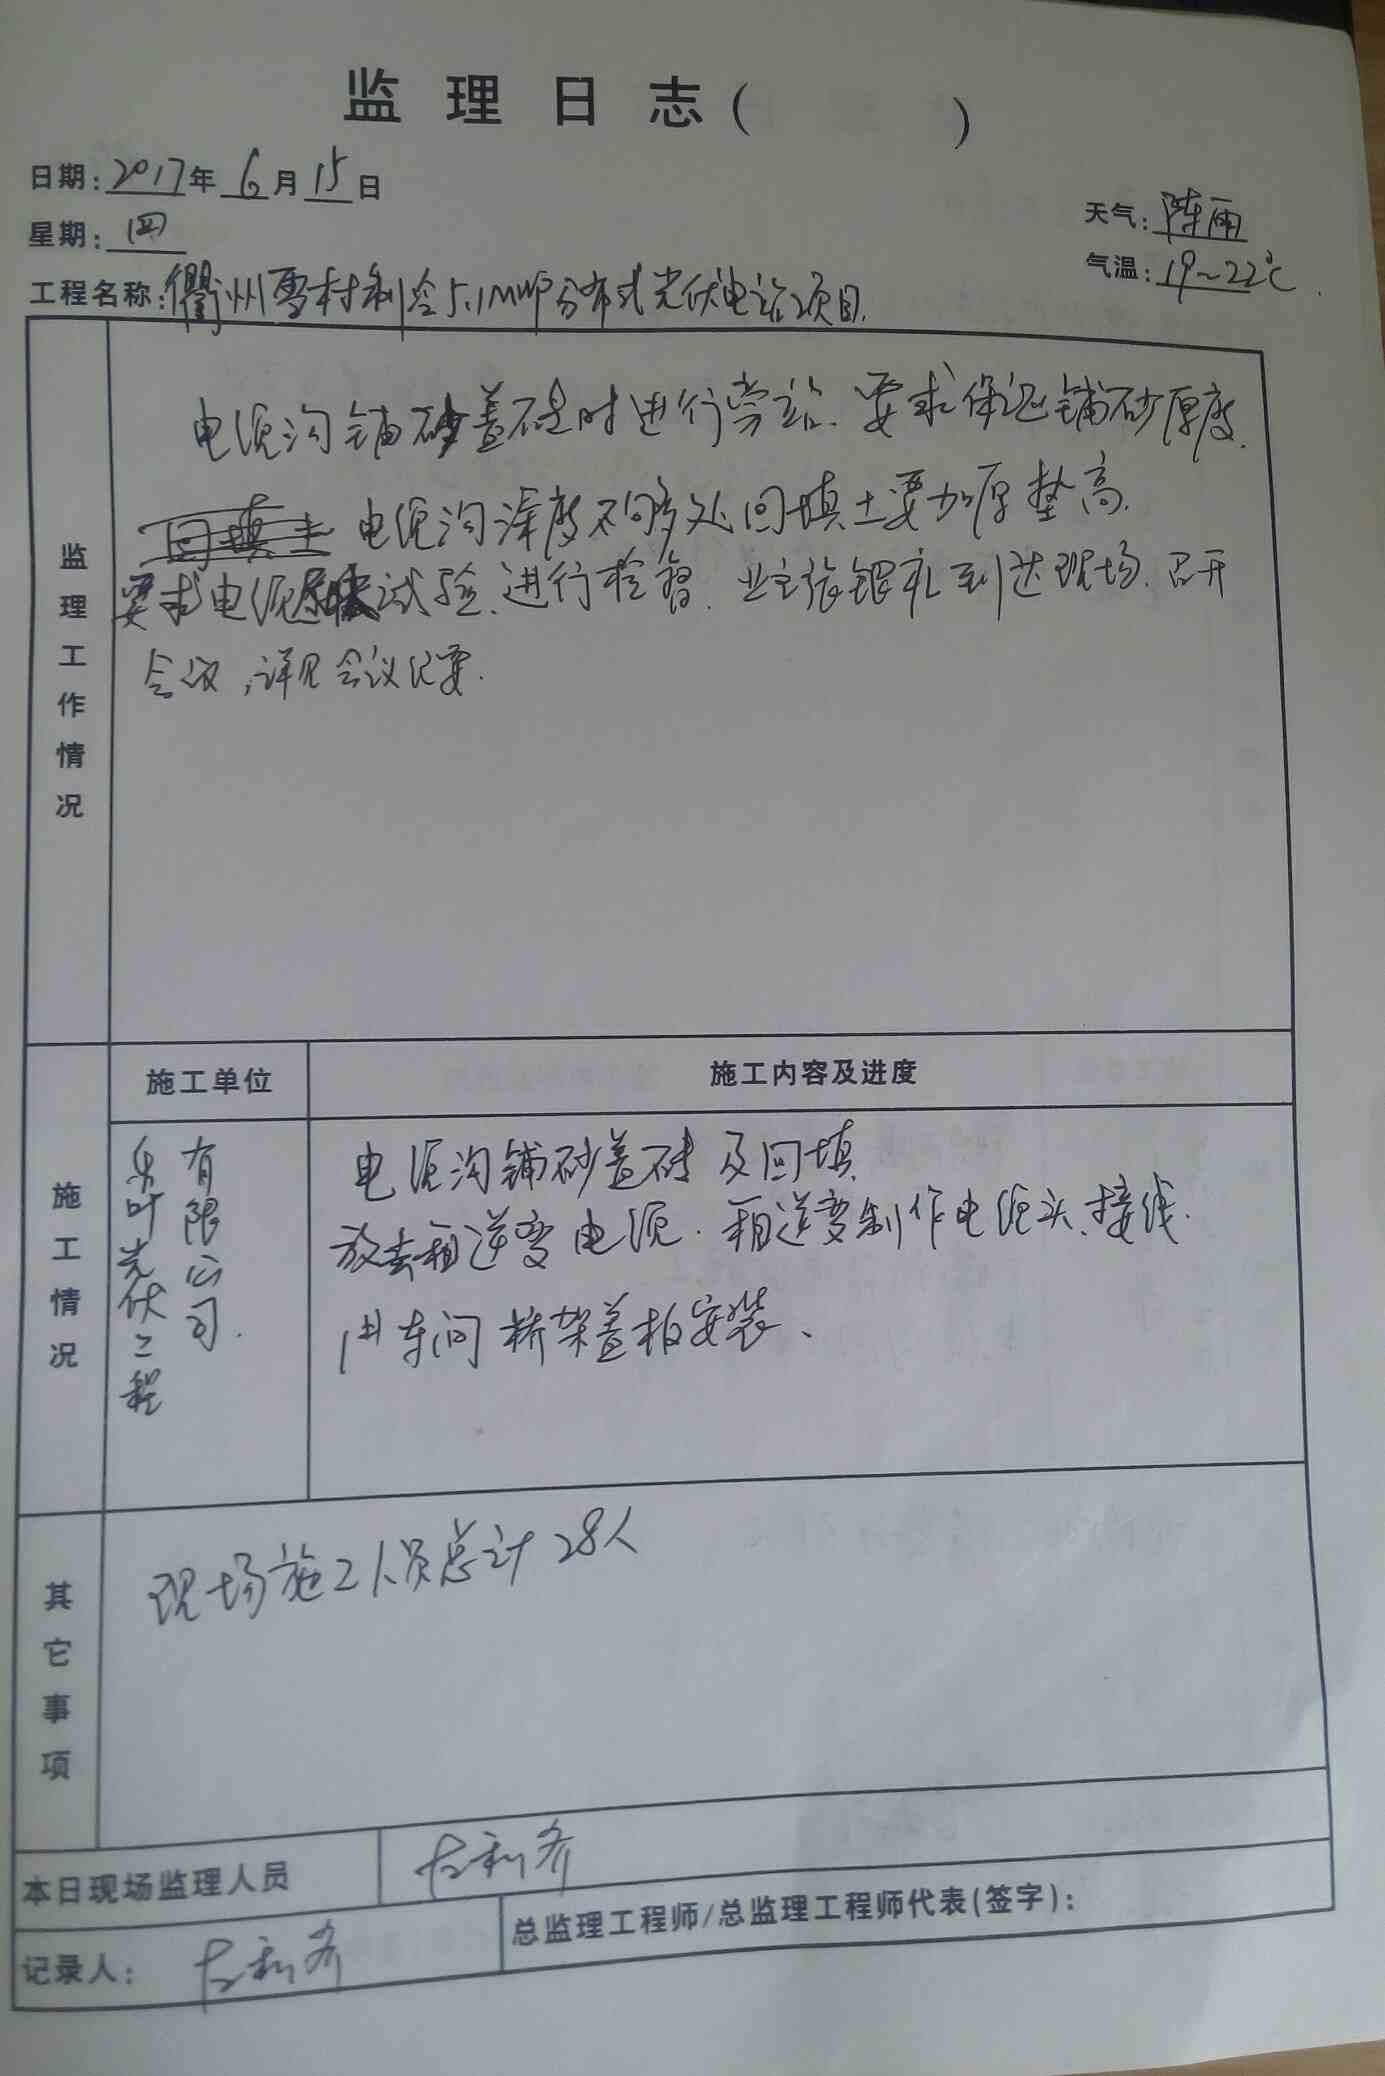 监理日志( )
日期:2017年6月15日
星期:四
天气:阵雨
气温:19~22℃
工程名称:衢州雪村制冷5.1MWP分布式光伏电站项目.
监理工作情况
电缆沟铺砂盖砖时进行旁站.要求保证铺砂厚度.
电缆沟深度不够多处回填土要加厚垫高.
要求电缆试验.进行检督.业主张银礼到达现场.召开
会议,详见会议纪要.
施工情况
施工单位
施工内容及进度
乐叶光伏工程
有限公司.
电缆沟铺砂盖砖及回填.
放去箱逆变电缆.箱逆变制作电缆头、接线.
1#车间桥架盖板安装、
其它事项
现场施工人员总计28人
本日现场监理人员
记录人:
总监理工程师/总监理工程师代表(签字):